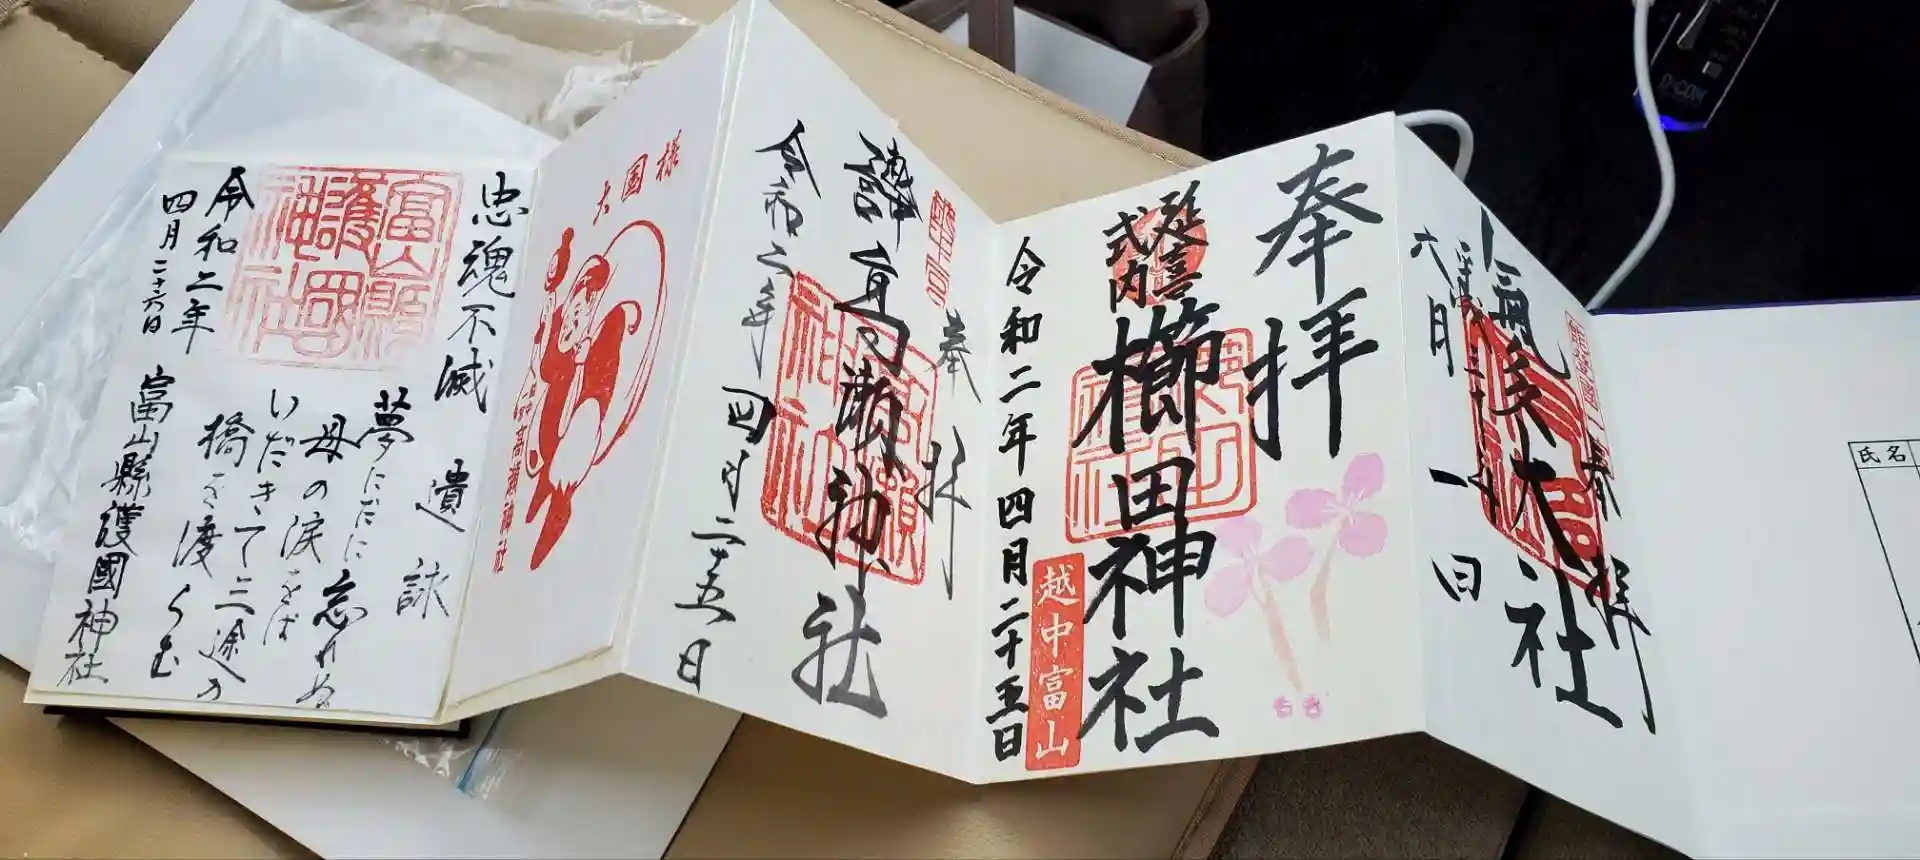 奉拝
氣多大社
六月一日
奉拝
延喜
式内
櫛田神社
令和二年四月二十五日
越中富山
奉拝
高瀬神社
令和二年四月二十五日
大国様
高瀬神社
忠魂不滅
遺詠
夢にだに忘れぬ
母の涙をば
いだきて三途の
橋を渡らむ
富山縣護國神社
令和二年
四月二十六日
富山縣
護國
神社
氏名